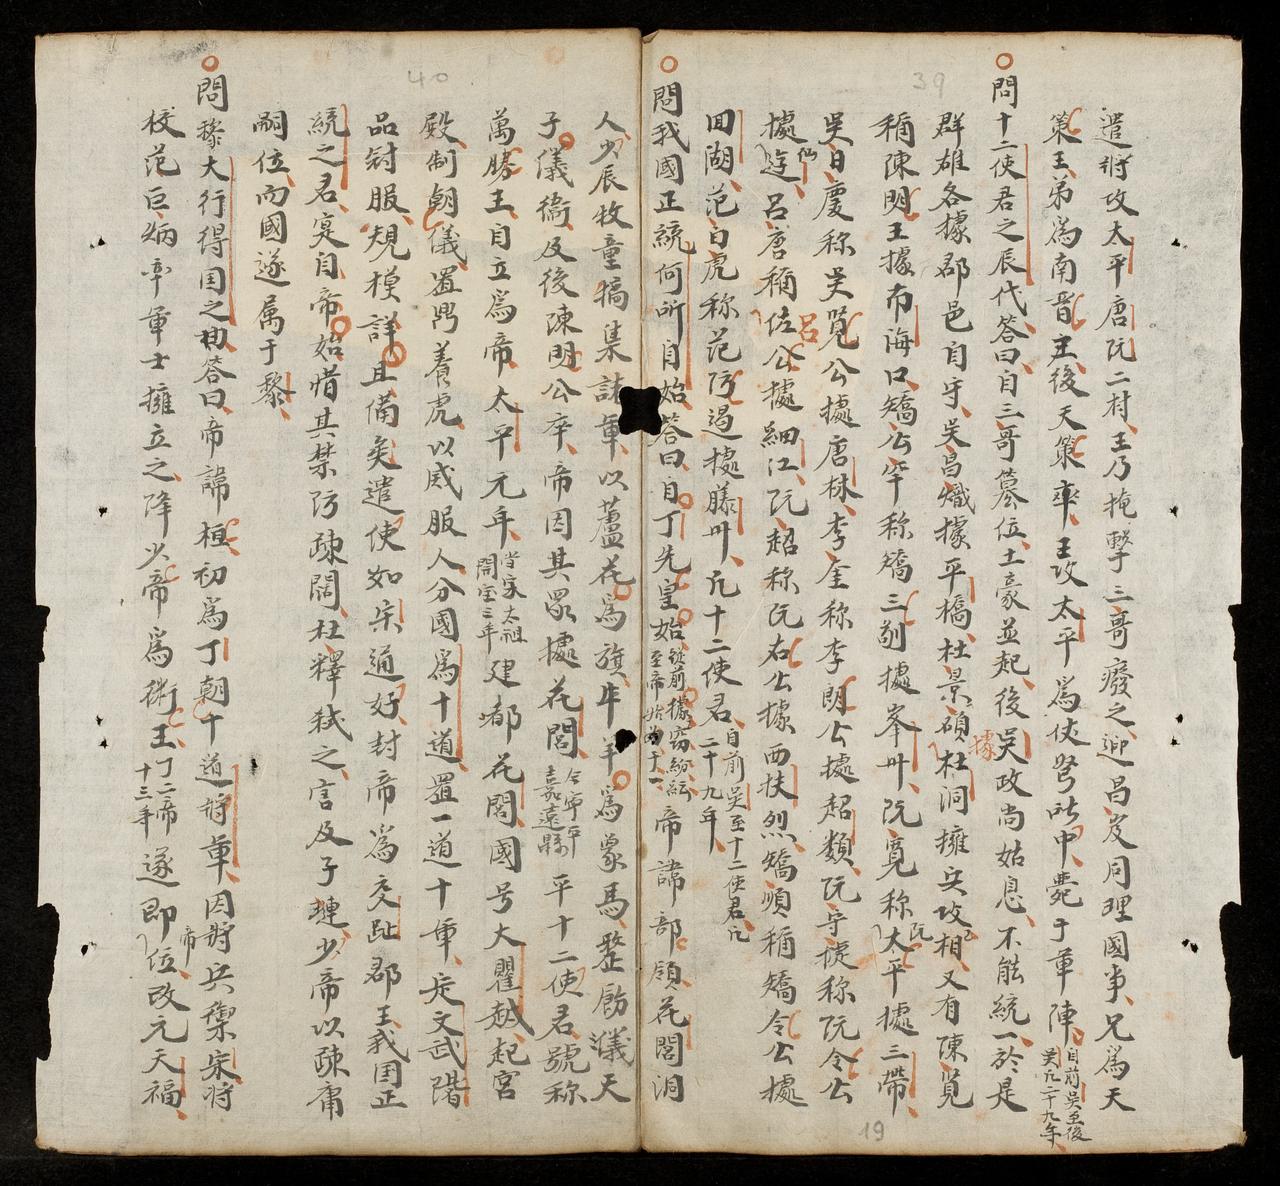 39
遣將攻太平唐阮二村王乃掩擊三哥廢之迎昌岌同理國事兄爲天
策王弟爲南晋主後天策卒王攻太平爲伏弩所中薨于軍陣自前吳至後吳凡二十九年
問十二使君之辰代答曰自三哥篡位土豪並起後吳政尚姑息不能統一於是
群雄各據郡邑自守吳昌熾據平橋杜景碩據杜洞擁兵攻相又有陳覽
稱陳明王據布海口矯公罕称矯三制據峯州阮寬称阮太平據三帶
吳日慶称吳覧公據唐林李奎称李朗公據超類阮守捷称阮令公
據迯仙呂唐稱呂佐公據細江阮超称阮右公據西扶烈矯順稱矯令公據
回湖范白虎称范防遏據藤州凡十二使君自前吳至十二使君凡二十九年
問我國正統何所自始答曰自丁先皇始從前據窃紛紜至帝始爲十一帝諱部領花閭洞
19
40
人少辰牧童犒集諸軍以蘆花爲旗牛羊爲象馬整飭儀天
子儀衞及後陳明公卒帝因其眾據花閭今寧平嘉遠縣平十二使君號称
萬勝王自立爲帝太平元年當宋太祖開宝三年建都花閭國号大瞿越起宮
殿制朝儀置鼎養虎以威服人分國爲十道置一道十軍定文武階
品封服規模詳且備矣遣使如宋通好封帝爲交趾郡王我国正
統之君寔自帝始惜其禁防疎闊杜釋弒之言及子璉少帝以疎庸
嗣位而國遂属于黎
問黎大行得国之由答曰帝諱桓初爲丁朝十道將軍因將兵禦宋將
校范巨炳率軍士擁立之降少帝爲衛王丁二帝十三年遂即帝位改元天福